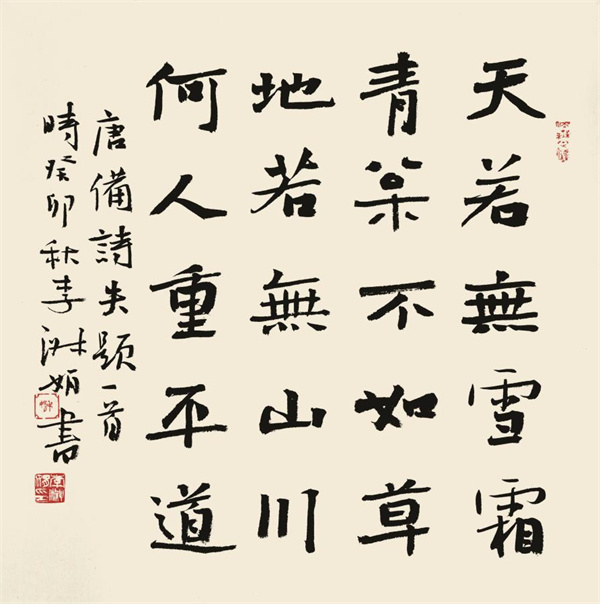 天若無雪霜
青枀不如草
地若無山川
何人重平道
唐備詩失題一首
時癸卯秋李淑娟書